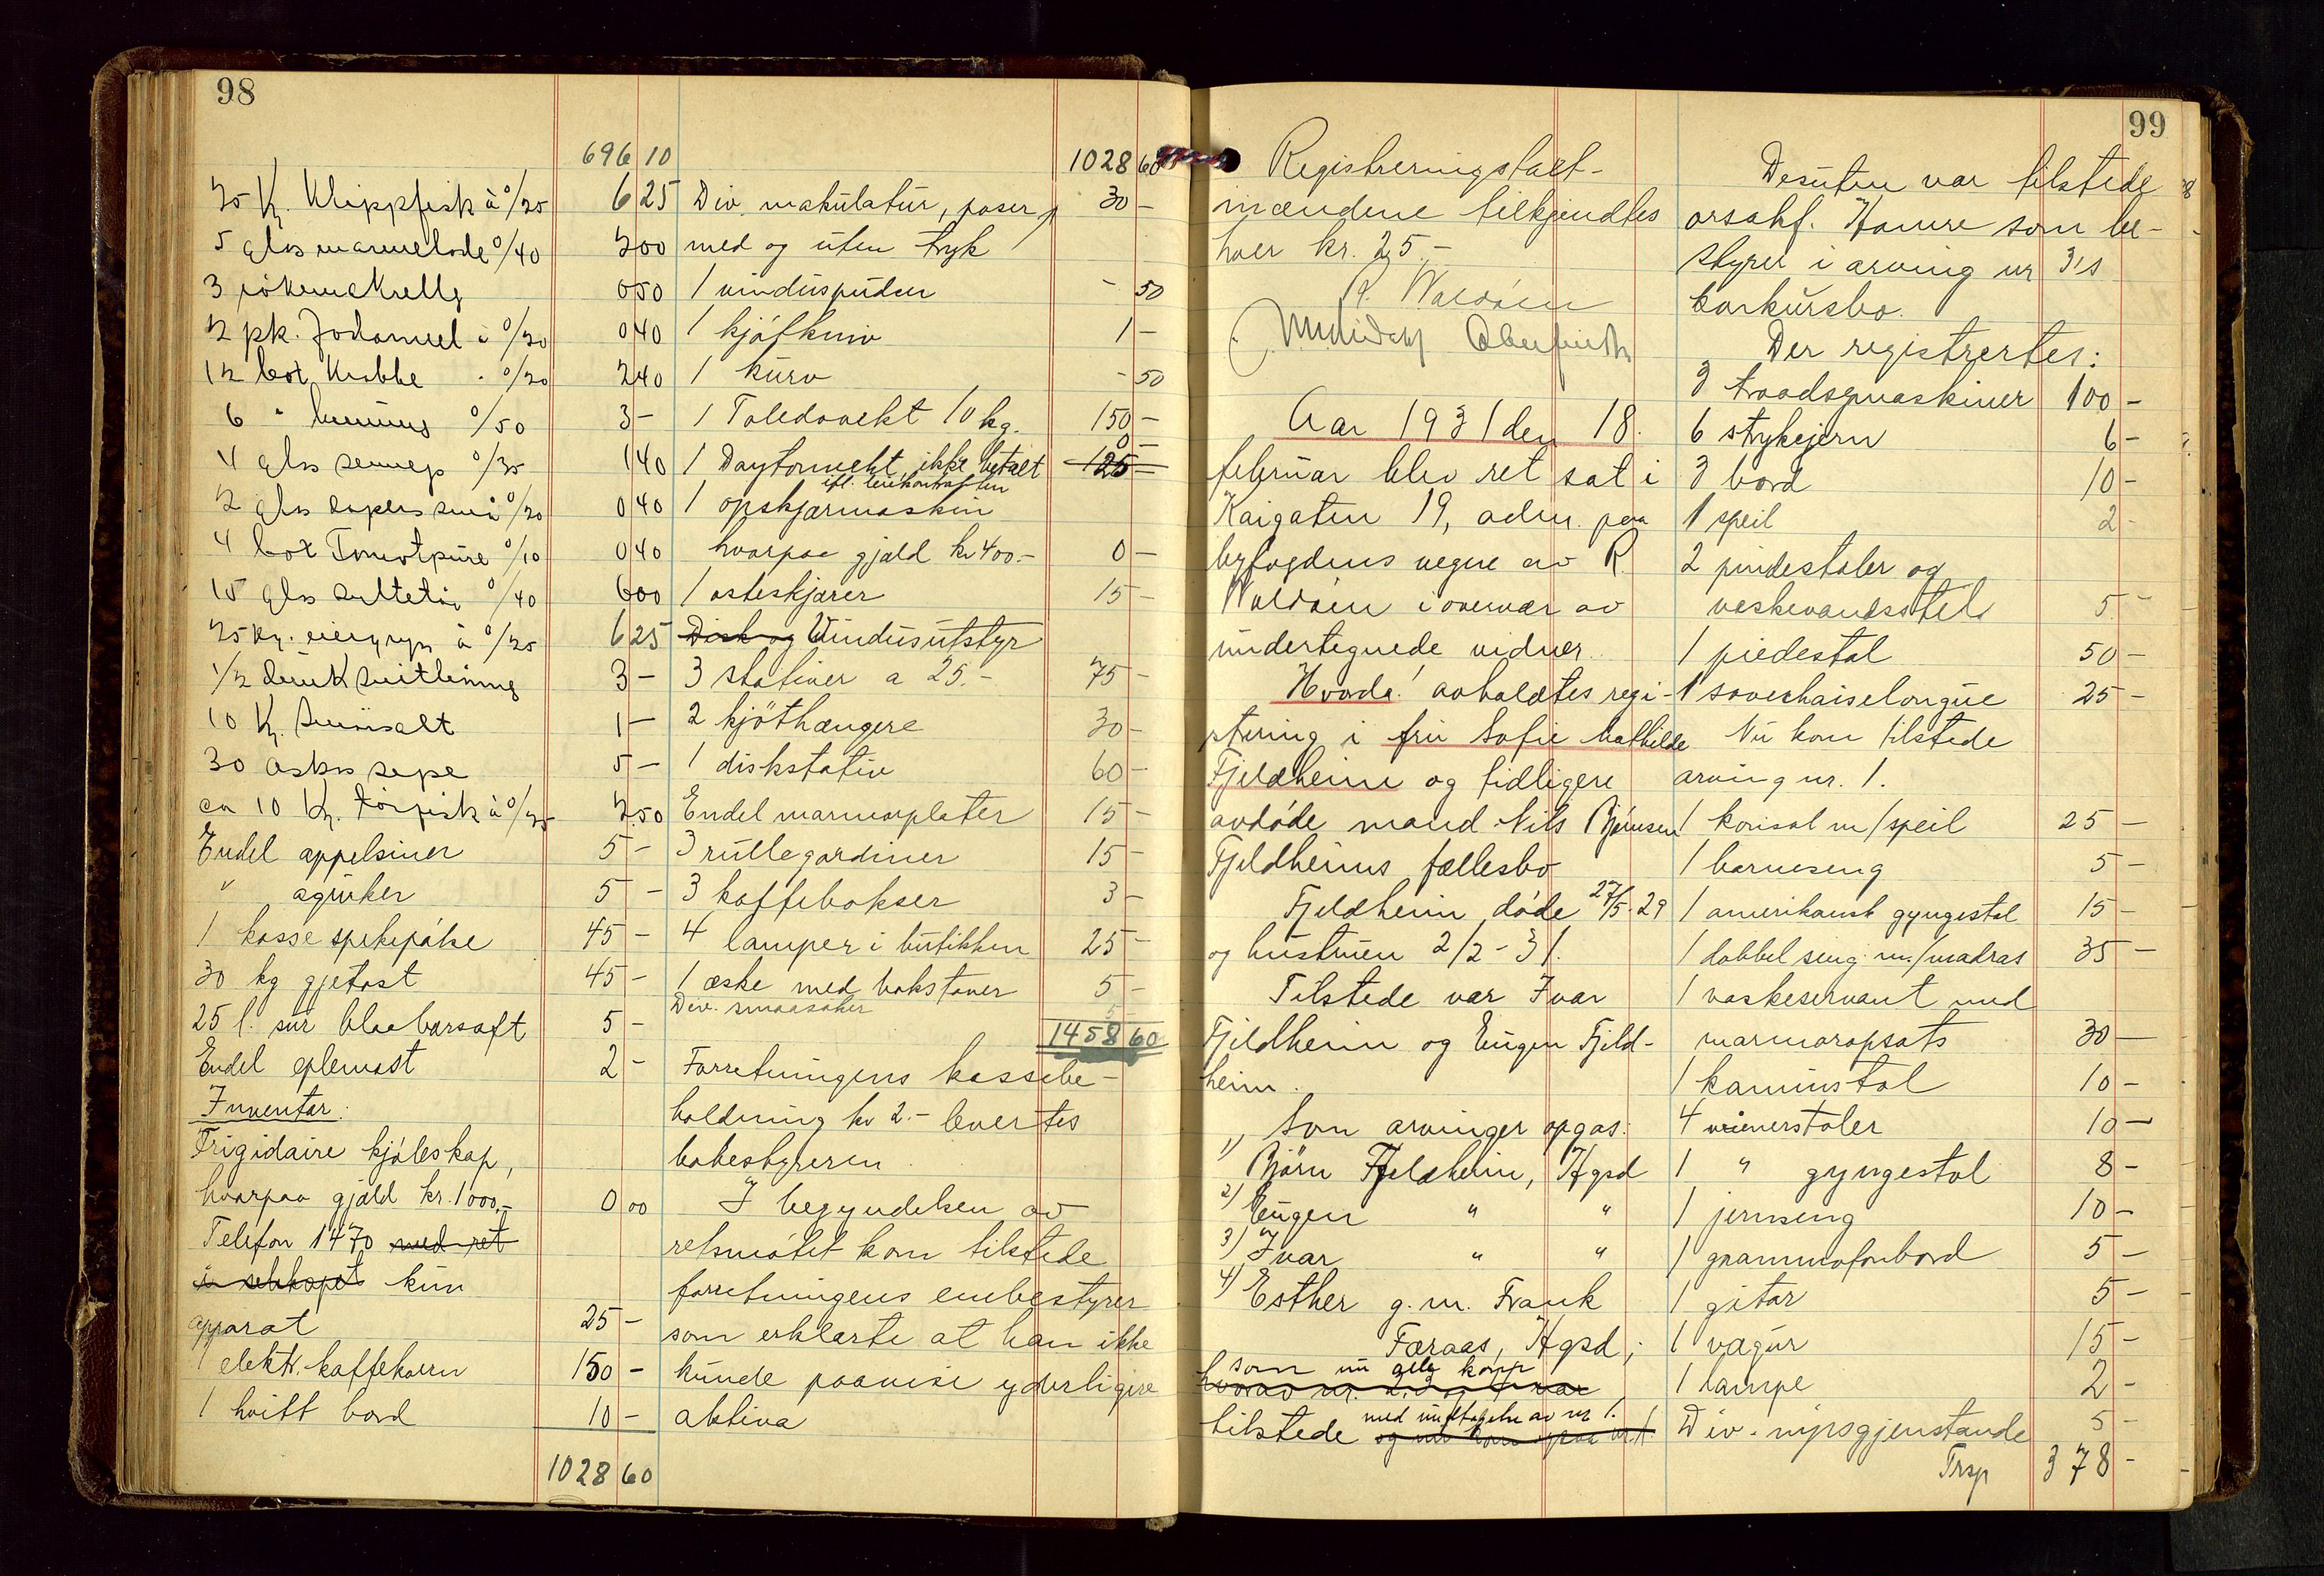 98
696 10
25 kg. Klippfisk à 0/25 6 25
5 glas marmelade 0/40 2 00
3 0 50
2 pk. à 0/20 0 40
12 box Krabbe " 0/20 2 40
6 " 0/50 3 -
4 glas sennep 0/35 1 40
2 glas kapers små 0/20 0 40
4 box Tomatpure 0/10 0 40
15 glas 0/40 6 00
25 kg. à 0/25 6 25
1/2 3 -
10 kg. 1 -
30 sepe 5 -
ca 10 kg. tørfisk à 0/25 2.50
Endel appelsiner 5 -
" agurker 5 -
1 kasse spekepølse 45 -
30 kg gjetost 45 -
25 l. sur blaabærsaft 5 -
Endel eplemost 2 -
Inventar:
Frigidaire kjøleskap,
hvorpaa gjæld kr. 1000.- 0 00
Telefon 1470 med ret
i selskapet kun
apparat 25 -
1 elektr. kaffekvern 150 -
1 hvitt bord 10 -
1028 60
1028 60
Div. makulatur, poser 30 -
med og uten tryk
1 vinduspudser - 50
1 kjøtkniv 1 -
1 kurv - 50
1 Toledovekt 10 kg. 150 -
0 -
1 Daytonvekt, ikke betalt 125 -
ifl. leiekontrakten
1 opskjærmaskin
hvorpaa gjæld kr 400.- 0 -
1 osteskjærer 15 -
Disk og Vindusutstyr
3 stativer a 25.- 75 -
2 kjøthængere 30 -
1 diskstativ 60 -
Endel marmorplater 15 -
3 rullegardiner 15 -
3 kaffebokser 3 -
4 lamper i butikken 25 -
1 æske med bokstaver 5 -
Div. smaasaker 5 -
1458 60
Forretningens kassebe-
holdning kr 2.- levertes
bobestyreren.
I begyndelsen av
retsmøtet kom tilstede
forretningens enebestyrer
som erklærte at han ikke
kunde paavise yderligere
aktiva
Registreringstakst-
mændene tilkjendtes
hver kr. 25.-
R. Waldøen
Aar 1931 den 18.
februar blev ret sat i
Kaigaten 19, adm. paa
byfogdens vegne av R.
Waldøen i overvær av
undertegnede vidner.
Hvorda! avholdtes regi-
strering i fru Sofie Mathilde
Fjeldheim og tidligere
avdøde mand Nils Bjørnsen
Fjeldheims fællesbo
Fjeldheim døde 27/5-29
og hustruen 2/2-31.
Tilstede var Ivar
Fjeldheim og Eugen Fjeld-
heim.
Som arvinger opgas:
1) Bjørn Fjeldheim, Hgsd
2) Eugen " "
3) Ivar " "
4) Esther g.m. Frank
Færaas, Hgsd;
som nu alle kom
hvorav nr. 2, 3 og 4 var
med undtagelse av nr 1.
tilstede og nu kom ogsaa nr. 1.
99
Desuten var tilstede
orsakf. Hamre som be-
styrer i arving nr 3's
konkursbo.
Der registrertes:
3 traadsymaskiner 100 -
6 strykejern 6 -
3 bord 10 -
1 speil 2 -
2 pindestoler og
veskevandsstel 5 -
1 piedestal 50 -
1 sovechaiselongue 25 -
Nu kom tilstede
arving nr. 1.
1 konsol m/speil 25 -
1 barneseng 5 -
1 amerikansk gyngestol 15 -
1 dobbel seng m/madras 35 -
1 vaskeservant med
marmoropsats 30 -
1 kaminstol 10 -
4 wienerstoler 10 -
1 " gyngestol 8 -
1 jernseng 10 -
1 grammofonbord 5 -
1 gitar 5 -
1 vægur 15 -
1 lampe 2 -
Div. nipsgjenstande 5 -
Trsp 378 -